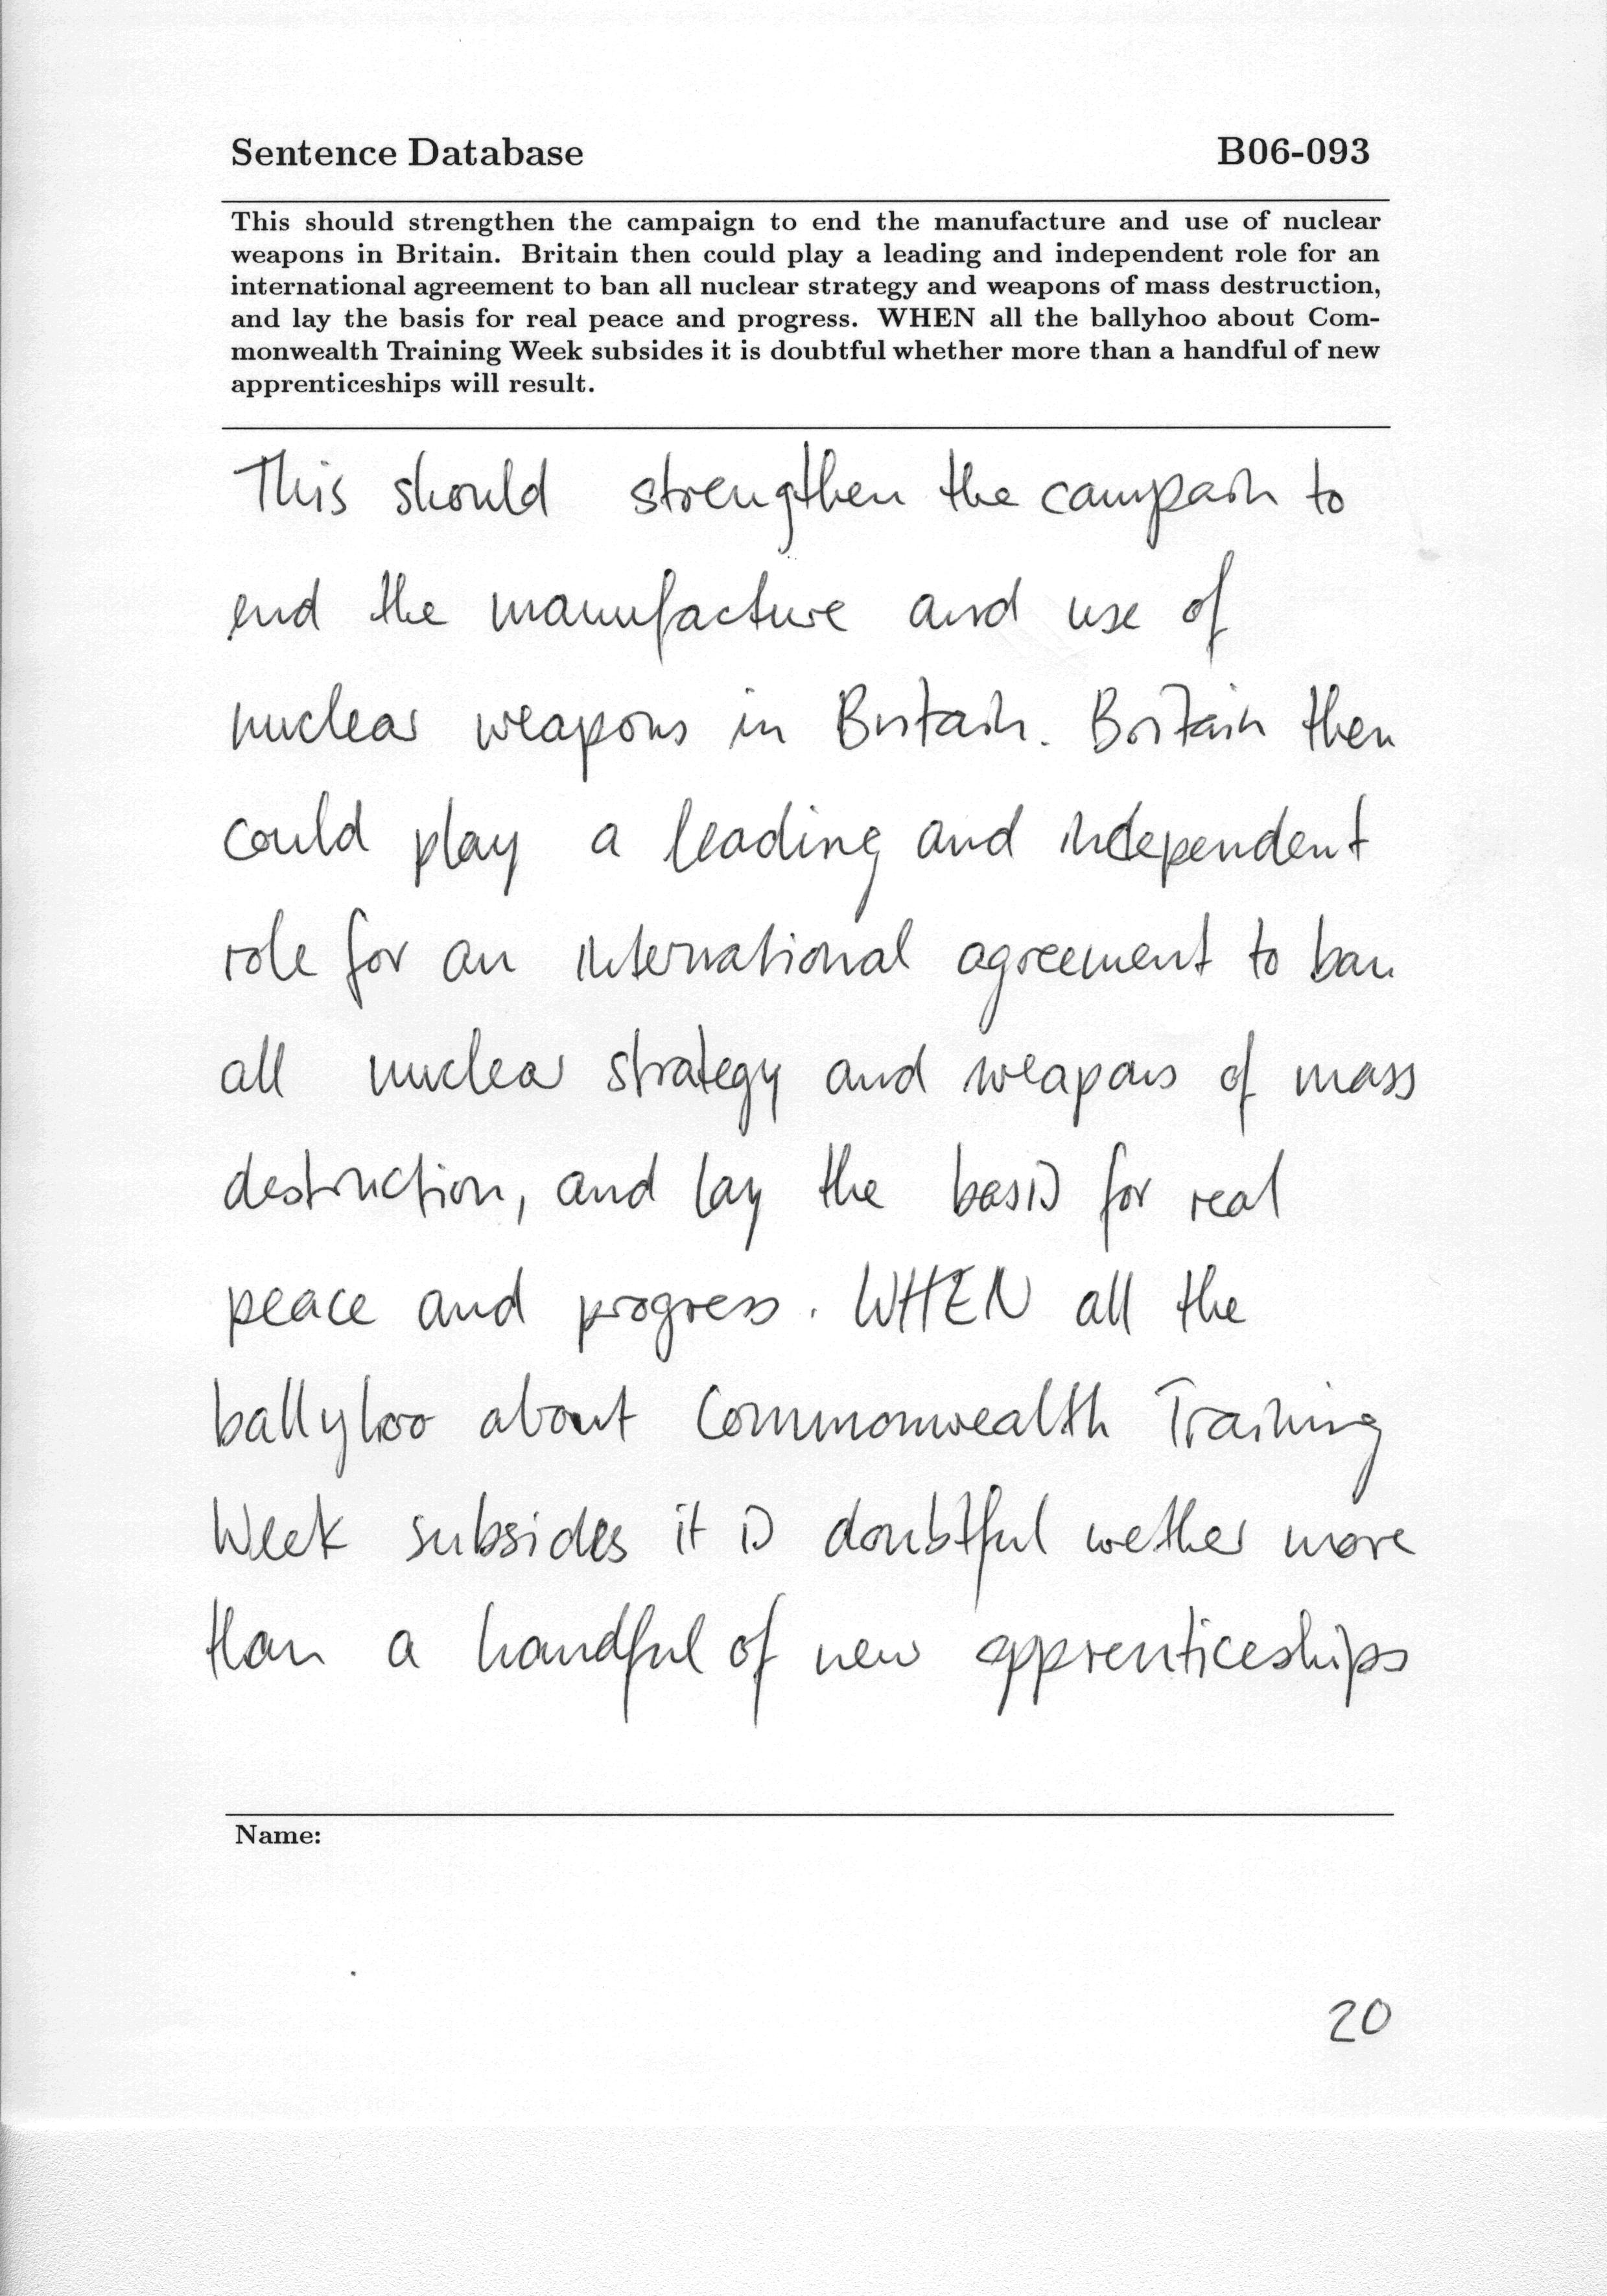 Sentence Database B06-093
This should strengthen the campaign to end the manufacture and use of nuclear
weapons in Britain. Britain then could play a leading and independent role for an
international agreement to ban all nuclear strategy and weapons of mass destruction,
and lay the basis for real peace and progress. WHEN all the ballyhoo about Com-
monwealth Training Week subsides it is doubtful whether more than a handful of new
apprenticeships will result.
This should strengthen the campain to
end the manufacture and use of
nuclear weapons in Britain. Britain then
could play a leading and independent
role for an international agreement to ban
all nuclear strategy and weapons of mass
destruction, and lay the basis for real
peace and progress. WHEN all the
ballyhoo about Commonwealth Training
Week subsides it is doubtful wether more
than a handful of new apprenticeships
Name:
20